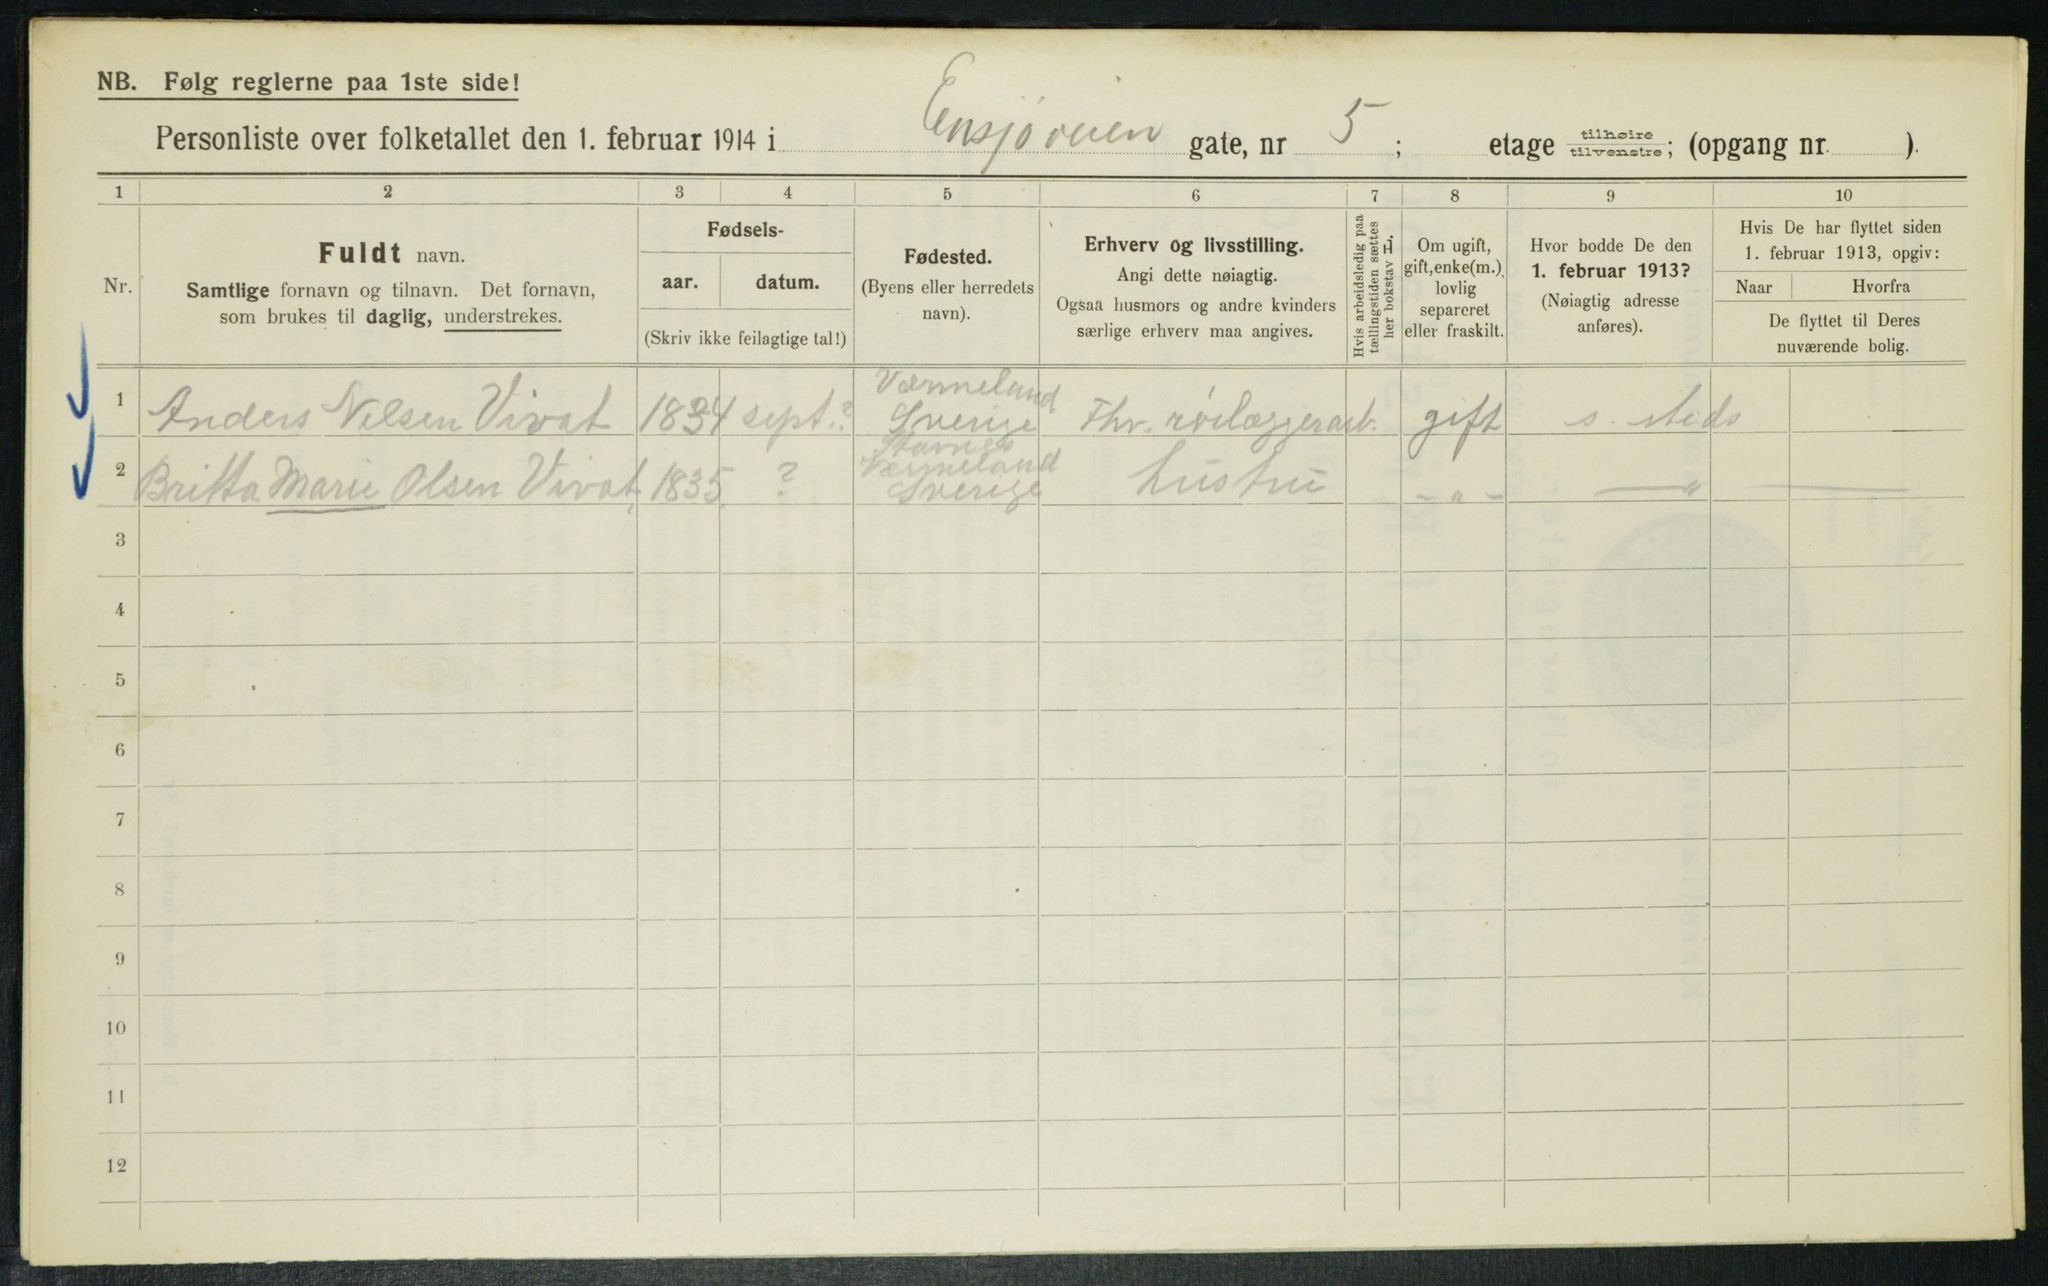 NB. Følg reglerne paa 1ste side!
Personliste over folketallet den 1. februar 1914 i Ensjøveien gate, nr 5; etage tilhøire tilvenstre; (opgang nr. ).
1 2 3 4 5 6 7 8 9 10
Nr.
Fuldt navn.
Samtlige fornavn og tilnavn. Det fornavn,
som brukes til daglig, understrekes.
Fødsels-
aar. datum.
(Skriv ikke feilagtige tal!)
Fødested.
(Byens eller herredets
navn).
Erhverv og livsstilling.
Angi dette nøiagtig.
Ogsaa husmors og andre kvinders
særlige erhverv maa angives.
Hvis arbeidsledig paa
tællingstiden sættes
her bokstav L.
Om ugift,
gift, enke(m.),
lovlig
separeret
eller fraskilt.
Hvor bodde De den
1. februar 1913?
(Nøiagtig adresse
anføres).
Hvis De har flyttet siden
1. februar 1913, opgiv:
Naar Hvorfra
De flyttet til Deres
nuværende bolig.
1 Anders Nilsen Vivat 1834 sept. ? Værmeland Sverige Fhv. rörlæggerarb. gift s. steds
2 Britta Marie Olsen Vivat, 1835 ? Stavnes Værmeland Sverige hustru - " - — " —
3
4
5
6
7
8
9
10
11
12